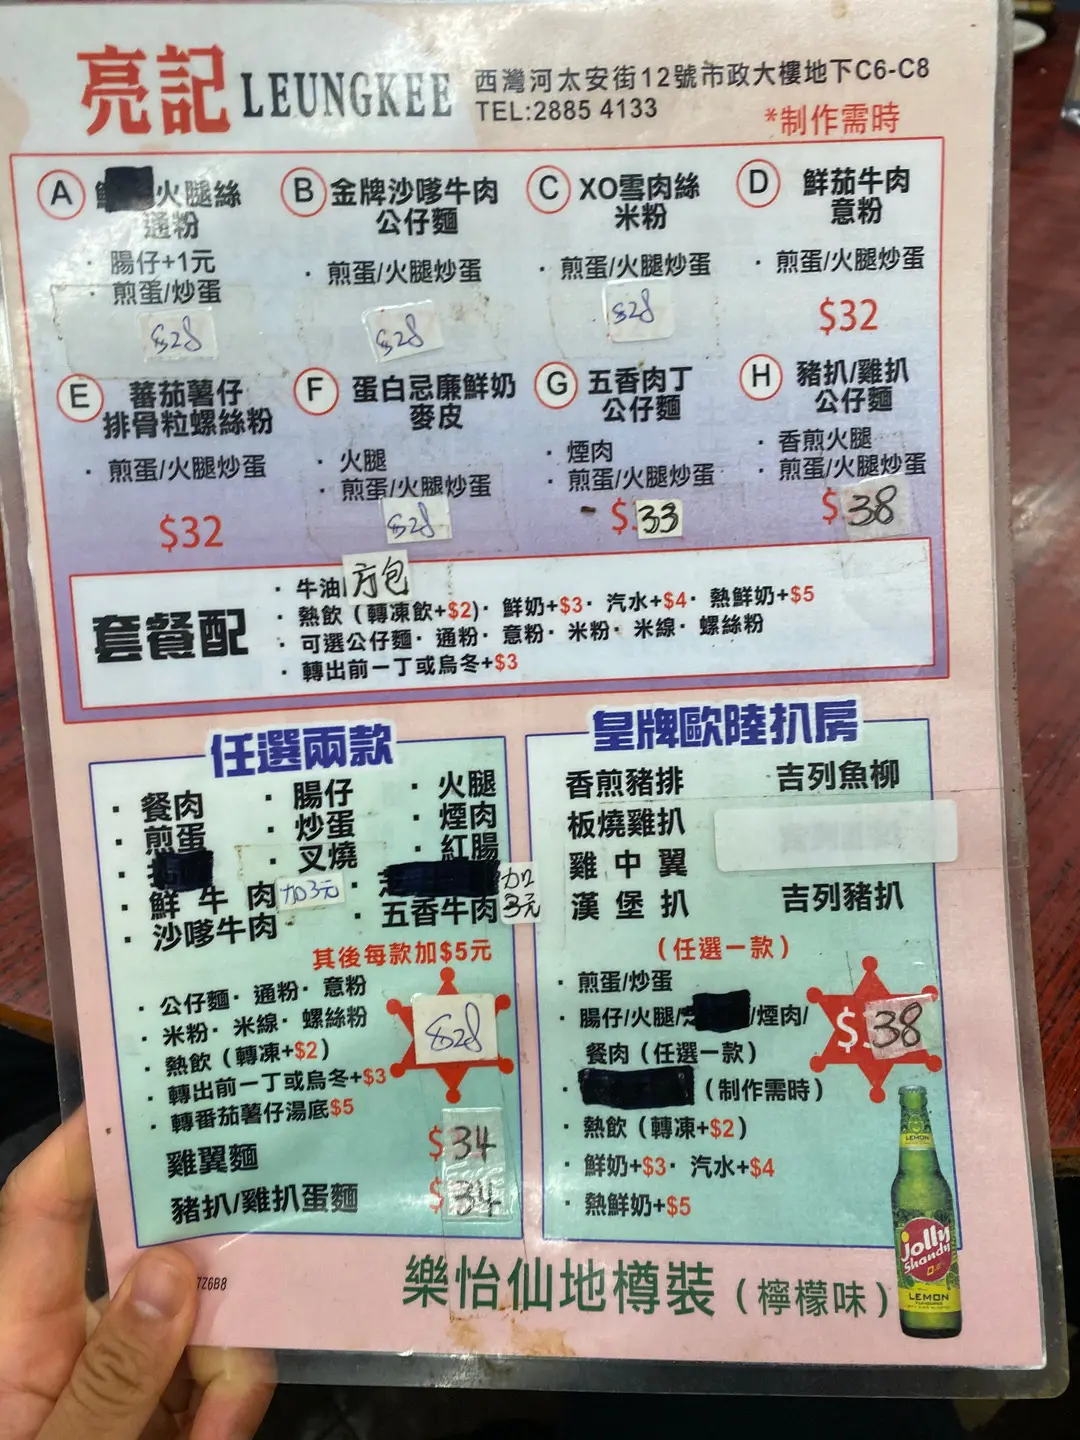 亮記 LEUNGKEE
西灣河太安街12號市政大樓地下C6-C8
TEL:2885 4133
*制作需時
A 火腿絲
通粉
· 腸仔+1元
· 煎蛋/炒蛋
$28
B 金牌沙嗲牛肉
公仔麵
· 煎蛋/火腿炒蛋
$28
C XO雪肉絲
米粉
· 煎蛋/火腿炒蛋
$28
D 鮮茄牛肉
意粉
· 煎蛋/火腿炒蛋
$32
E 蕃茄薯仔
排骨粒螺絲粉
· 煎蛋/火腿炒蛋
$32
F 蛋白忌廉鮮奶
麥皮
· 火腿
· 煎蛋/火腿炒蛋
$28
G 五香肉丁
公仔麵
· 煙肉
· 煎蛋/火腿炒蛋
$33
H 豬扒/雞扒
公仔麵
· 香煎火腿
· 煎蛋/火腿炒蛋
$38
套餐配
· 牛油方包
· 熱飲（轉凍飲+$2)· 鮮奶+$3· 汽水+$4· 熱鮮奶+$5
· 可選公仔麵· 通粉· 意粉· 米粉· 米線· 螺絲粉
· 轉出前一丁或烏冬+$3
任選兩款
· 餐肉 · 腸仔 · 火腿
· 煎蛋 · 炒蛋 · 煙肉
· 叉燒 · 紅腸
· 鮮牛肉 加3元
· 沙嗲牛肉 · 五香牛肉 加3元
其後每款加$5元
· 公仔麵· 通粉· 意粉
· 米粉· 米線· 螺絲粉
· 熱飲（轉凍+$2）
· 轉出前一丁或烏冬+$3
· 轉番茄薯仔湯底$5
$28
雞翼麵 $34
豬扒/雞扒蛋麵 $34
皇牌歐陸扒房
香煎豬排 吉列魚柳
板燒雞扒
雞中翼
漢堡扒 吉列豬扒
（任選一款）
· 煎蛋/炒蛋
· 腸仔/火腿/ /煙肉/
餐肉（任選一款）
· （制作需時）
· 熱飲（轉凍+$2）
· 鮮奶+$3· 汽水+$4
· 熱鮮奶+$5
$38
樂怡仙地樽裝（檸檬味）
LEMON
Jolly
Shandy
LEMON
TZ6B8